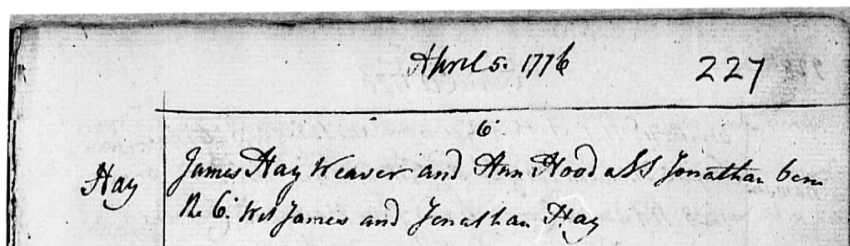 April 5. 1776 227
6
Hay James Hay Weaver and Ann Hood a S Jonathan born
the 6. Wit James and Jonathan Hay